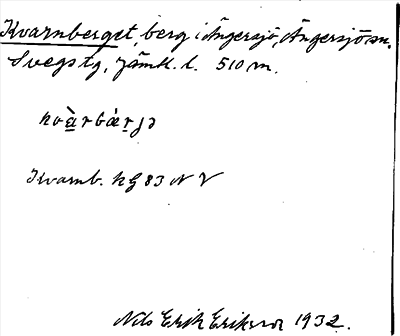 Kvarnberget, berg i Ängersjö, Ängersjö sn.
Svegs tg, Jämtl. l. 510 m.
Kvarnb. hg 83 N V
Nils Erik Erikson 1932.